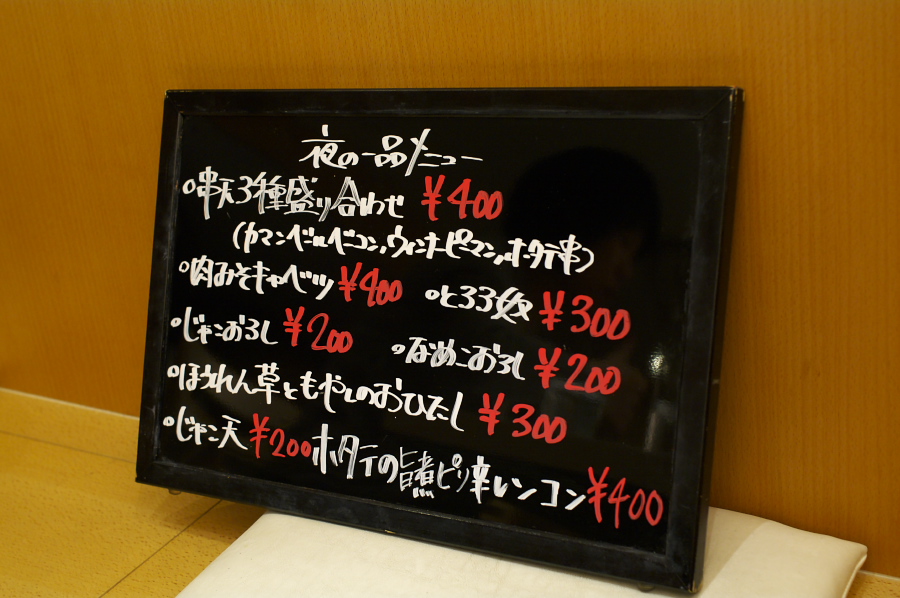 夜の一品メニュー
○串天3種盛り合わせ ¥400
(カマンベールベーコン,ウィンナーピーマン,ホタテ串)
○肉みそキャベツ ¥400 ○とろろ奴 ¥300
○じゃこおろし ¥200 ○なめこおろし ¥200
○ほうれん草ともやしのおひたし ¥300
○じゃこ天 ¥200 ホタテの旨煮ピリ辛レンコン ¥400